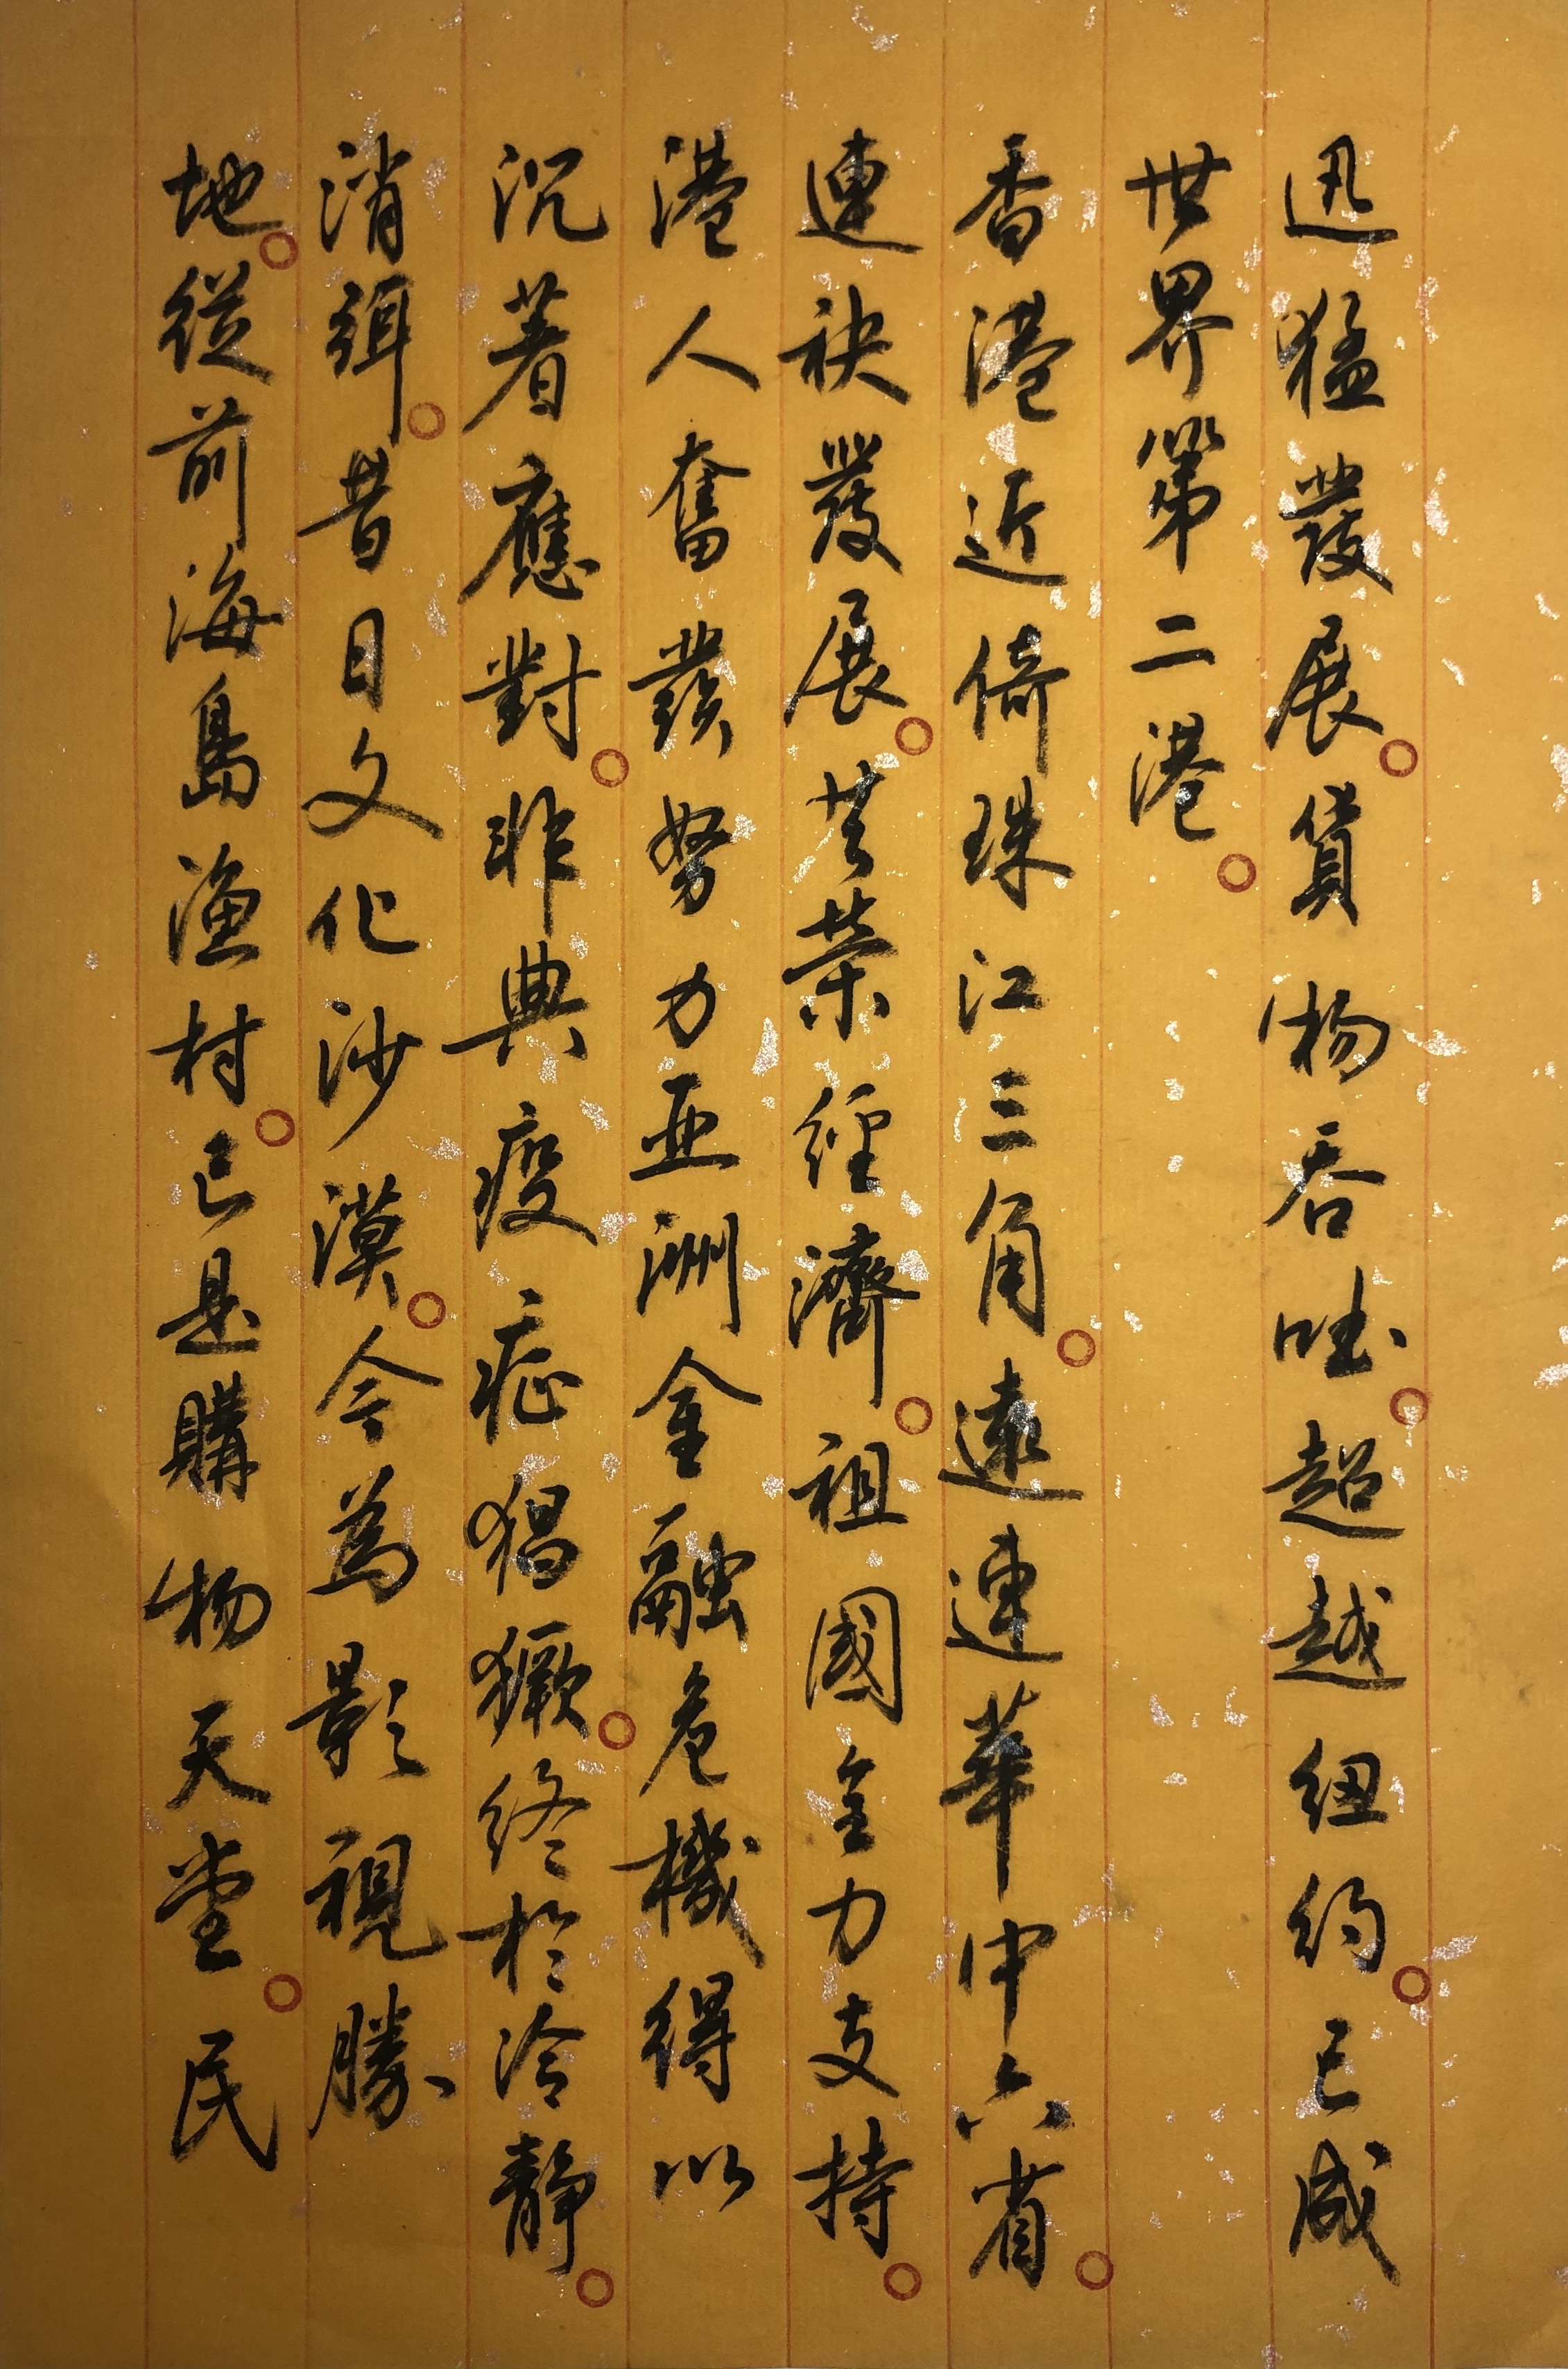 迅猛發展。貨物吞吐。超越紐約。已成
世界第二港。
香港近倚珠江三角。遠連華中六省。
連袂發展。共榮經濟。祖國全力支持。
港人奮發努力亞洲金融危機得以
沉著應對。非典疫症猖獗。終於冷靜。
消弭。昔日文化沙漠。今為影視勝
地。從前海島漁村。已是購物天堂。民